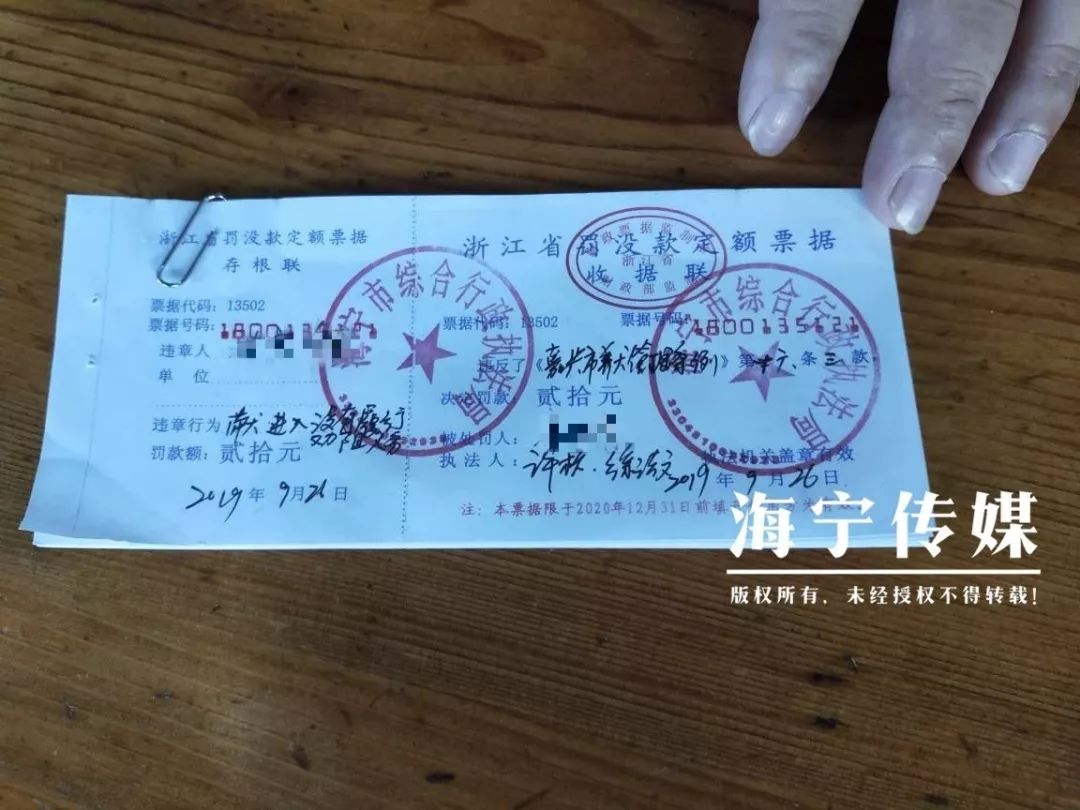 浙江省罚没款定额票据
存根联
票据代码：13502
票据号码：
违章人
单位
违章行为 带犬进入没有履行劝阻义务
罚款额：贰拾元
2019年9月26日
浙江省罚没款定额票据
收据联
票据代码：13502 票据号码：1800135121
违反了《嘉兴市养犬管理条例》第十六条三款，
决定罚款：贰拾元
被处罚人：
执法人： 执法机关盖章有效
2019年9月26日
注：本票据限于2020年12月31日前填
财政票据监制
浙江省
财政部监制
海宁市综合行政执法局
海宁市综合行政执法局
海宁传媒
版权所有，未经授权不得转载！